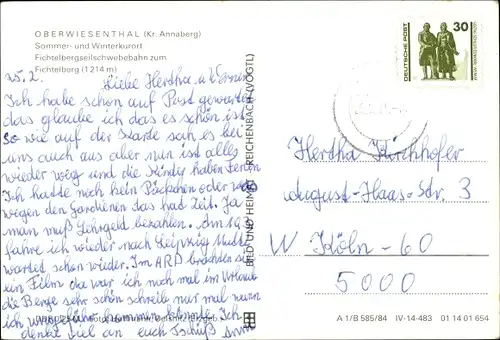 OBERWIESENTHAL (Kr. Annaberg)
Sommer- und Winterkurort
Fichtelbergseilschwebebahn zum
Fichtelberg (1214 m)
25.2.
Liebe Hertha u.
Ich habe schon auf Post gewartet
das glaube ich das es schön ist
So wie auf der Karte sah es bei
uns auch aus aber nun ist alles
wieder weg und die Kinder haben Ferien
Ich hatte noch kein Päckchen oder
wegen den Gardienen das hat Zeit. Ja
man muß Lehrgeld bezahlen. Am
fahre ich wieder nach Leipzig Mutter
wartet schon wieder. Im ARD brachten sie
ein Film da war ich noch mal im Urlaub
die Berge sehr schön schreib nur mal wann
ich kommen könnte. Ich
denke viel an euch Tschüß
BILD UND HEIMAT REICHENBACH (VOGTL)
DEUTSCHE POST
30
Hertha Kirchhofer
August-Haas-Str. 3
W Köln-60
5000
A 1/B 585/84 IV-14-483 01 14 01 654